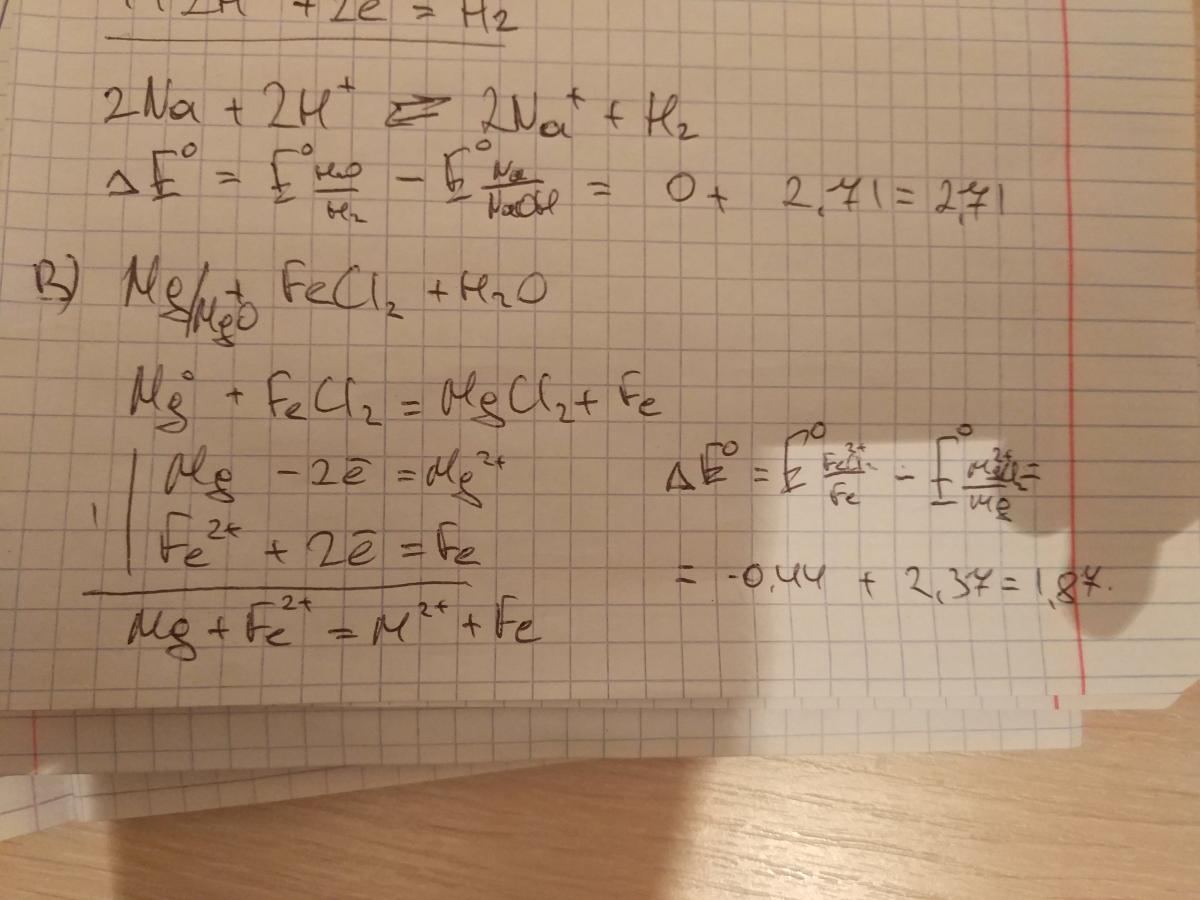 2H⁺ + 2ē = H₂
2Na + 2H⁺ ⇌ 2Na⁺ + H₂
ΔE⁰ = E⁰ H₂O/H₂ − E⁰ Na/NaOH = 0 + 2,71 = 2,71
В) Mg/MgO + FeCl₂ + H₂O
Mg⁰ + FeCl₂ = MgCl₂ + Fe
Mg − 2ē = Mg²⁺
1 | Fe²⁺ + 2ē = Fe
Mg + Fe²⁺ = M²⁺ + Fe
ΔE⁰ = E⁰ Fe²⁺/Fe − E⁰ M²⁺/Mg =
= -0,44 + 2,37 = 1,87.